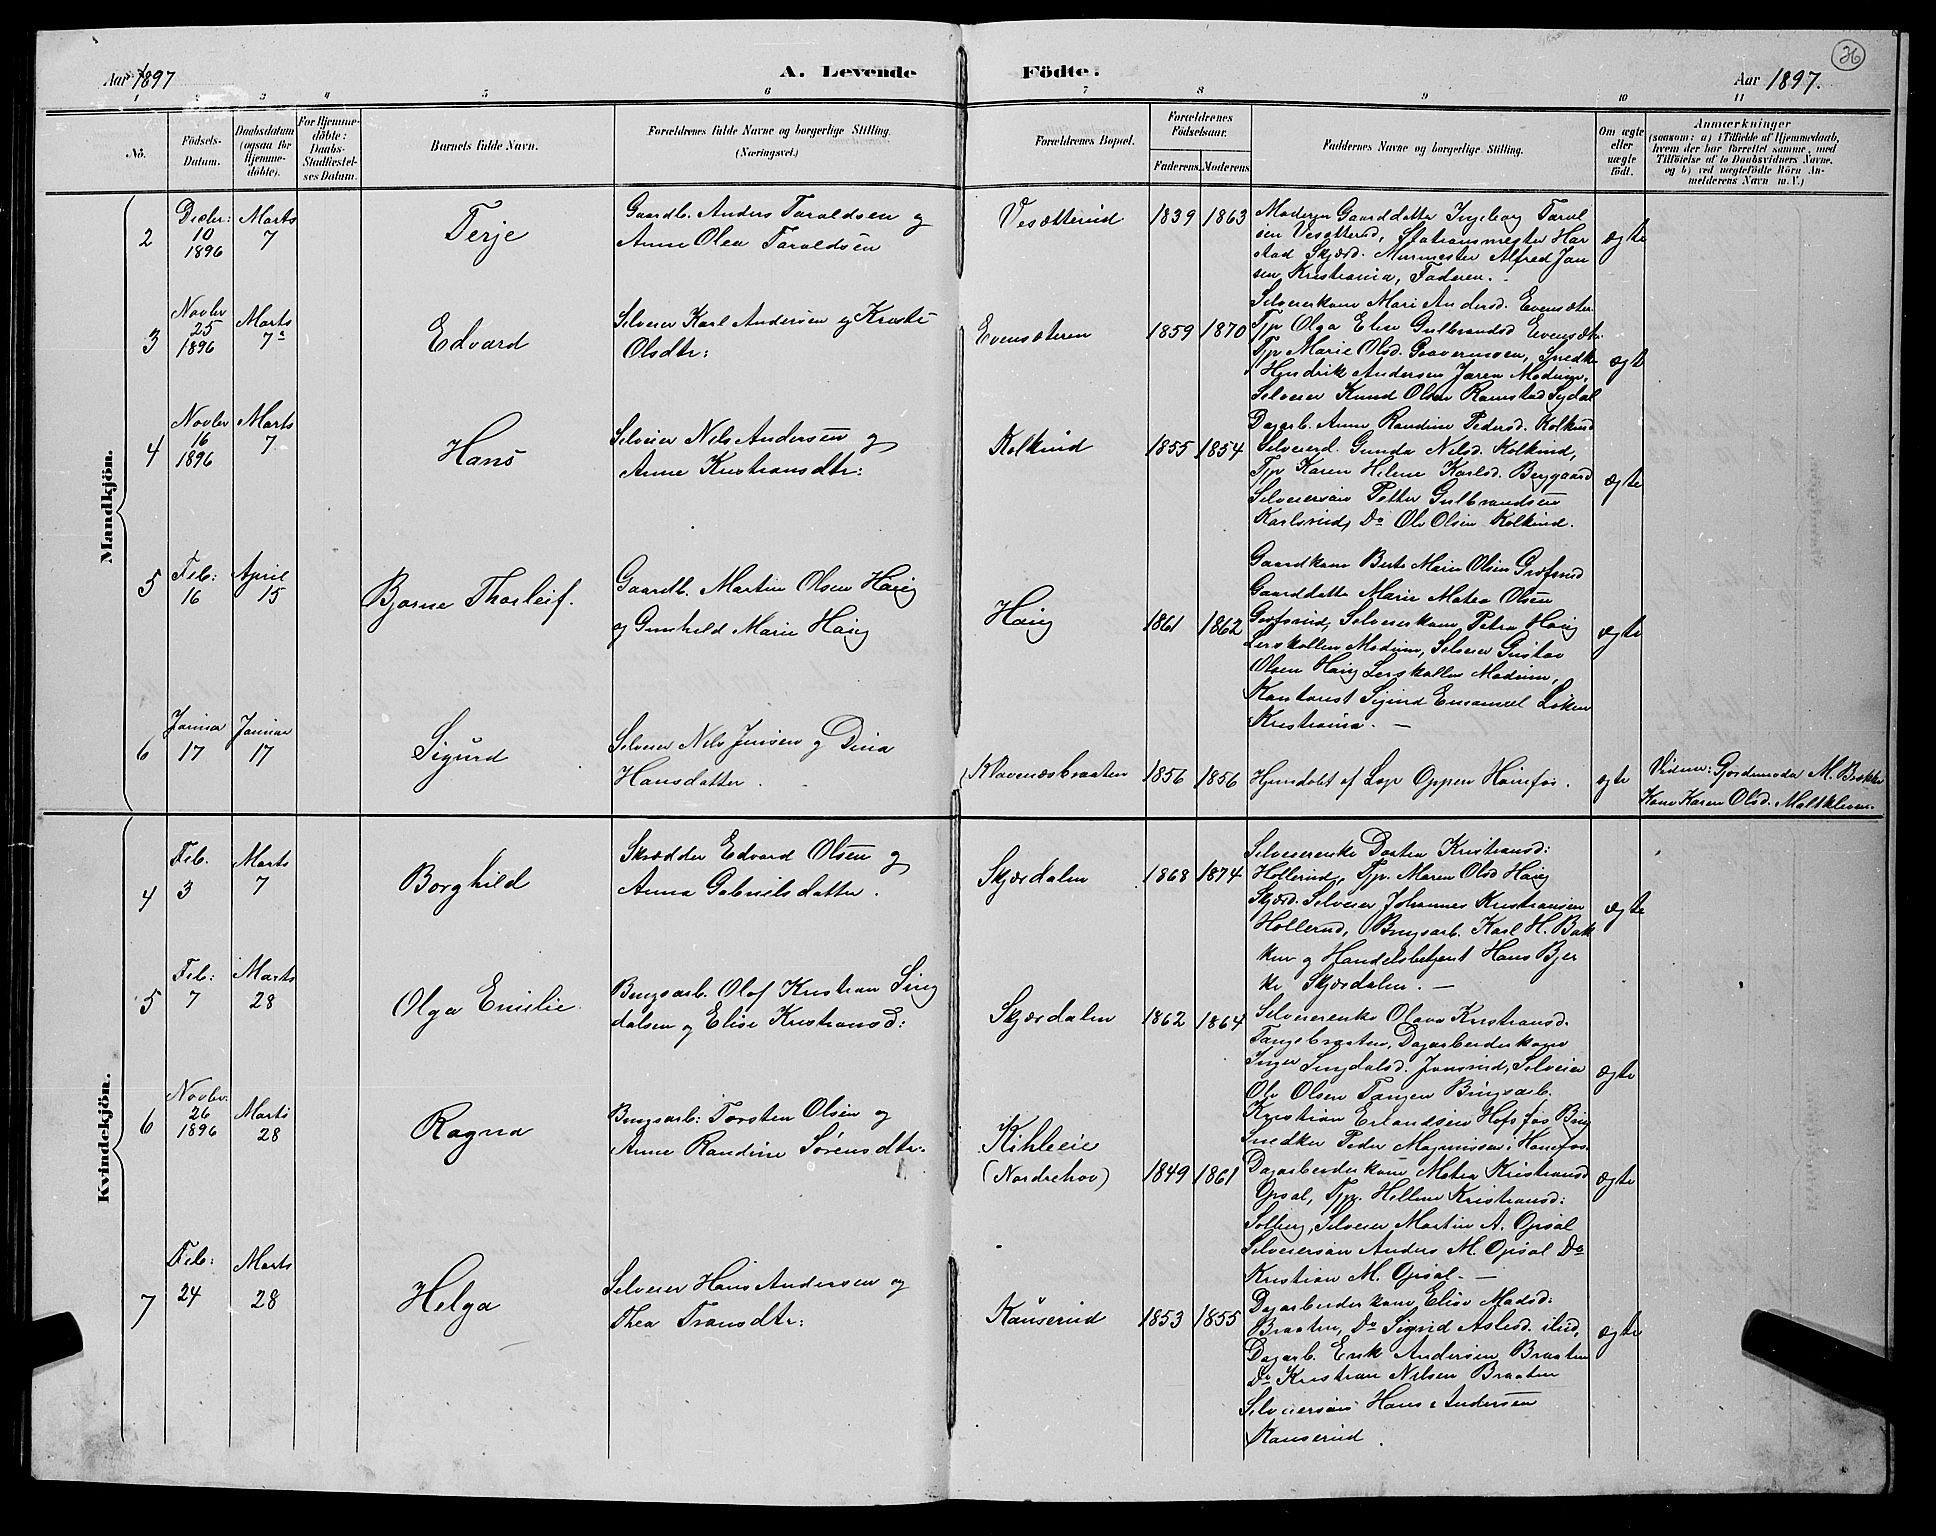 26
Aar 1897
A. Levende Födte.
Aar 1897.
1 2 3 4 5 6 7 8 9 10 11
No.
Födsels-
Datum.
Daabsdatum
(ogsaa for
Hjemme-
döbte).
For Hjemme-
döbte:
Daabs-
Stadfæstel-
ses Datum.
Barnets fulde Navn.
Forældrenes fulde Navne og borgerlige Stilling.
(Næringsvei.)
Forældrenes Bopæl.
Forældrenes
Födselsaar.
Faderens Moderens
Faddernes Navne og borgerlige Stilling.
Om ægte
eller
uægte
født.
Anmærkninger
(saasom: a) i Tilfælde af Hjemmedaab,
hvem der har forrettet samme, med
Tilföielse af to Daabsvidners Navne.
og b) ved uægtefödte Börn An-
melderens Navn m. V.)
Mandkjön.
2
Decbr:
10
1896
Marts
7
Terje
Gaardb. Anders Taraldsen og
Anne Olea Taraldsen
Vesætterud
1839 1863
Moderen Gaarddatter Ingeborg Taral
sen Vesætterud, Stationsmester Har
stad Skjærd. Murmester Alfred Jan
sen, Kristiania, Faderen.
ægte
3
Novbr
25
1896
Marts
7
Edvard
Selveier Karl Andersen og Kirsti
Olsdtr:
Evensæteren
1859 1870
Selveierkone Mari Andersd. Evensæter
Tjp Olga Elise Gulbrandsd Evensæt.
Tjp Marie Olsd. , Snedk
Hendrik Andersen Jaren Modum,
Selveier Knud Olsen Ramstad Sigdal
ægte
4
Novbr
16
1896
Marts
7
Hans
Selveier Nils Andersen og
Anne Kristiansdtr:
Kolkind
1855 1854
Dagarb. Anne Randine Pedersd. Kolkind
Selveierd. Gunda Nilsd. Kolkind,
Tjp Karen Helene Karlsd. Berggaard
Selveiersøn Petter Gulbrandsen
Karlsrud, Do Ole Olsen Kolkind.
ægte
5
Feb:
16
April
15
Bjarne Thorleif.
Gaardb. Martin Olsen Haug
og Gunhild Marie Haug
Haug
1861 1862
Gaardkone Berte Marie Olsen Grøfsrud
Gaarddatter Marie Matea Olsen
Grøfsrud, Selveierkone Petra Haug
Lerskallen Modum, Selveier Gustav
Olsen Haug Lerskallen Modum,
Kontorist Sigurd Emanuel Løken
Kristiania. —
ægte
6
Januar
17
Januar
17
Sigurd
Selveier Nils Jensen og Dina
Hansdatter.
Klavenæsbraaten
1856 1856
Hjemdøbt af Læge Oppen Hønefos.
ægte
Vidne: Gjordemoder M. Brekke
Kone Karen Olsd. Moltkleven.
Kvindekjön.
4
Feb.
3
Marts
7
Borghild
Skrædder Edvard Olsen og
Anna Gabrielsdatter.
Skjærdalen
1868 1874
Selveierenke Dortea Kristiansd:
Hollerud, Tjp. Maren Olsd Haug
Skjærd. Selveier Johannes Kristiansen
Hollerud, Brugsarb. Karl H. Bak
ken og Handelsbetjent Hans Bjer
ke Skjærdalen. —
ægte
5
Feb:
7
Marts
28
Olga Emilie.
Brugsarb. Olof Kristian Sing
dalsen og Elise Kristiansd:
Skjærdalen
1862 1864
Selveierenke Olava Kristiansd.
Tangebraaten, Dagarbeiderkone
Inger Singdalsd. Jonsrud, Selveier
Ole Olsen Tangen Brugsarb.
Kristian Erlandsen Hofsfos Brug
Snedker Peder Magnussen Hønefos.
ægte
6
Novbr.
26
1896
Marts
28
Ragna
Brugsarb: Torsten Olsen og
Anne Randine Sørensdtr.
Kihleeie
(Norderhov)
1849 1861
Dagarbeiderkone Matea Kristiansd
Opsal, Tjp. Hellene Kristiansd:
Solberg, Selveier Martin A. Opsal
Selveiersøn Anders M. Opsal Do
Kristian M. Opsal. —
ægte
7
Feb:
24
Marts
28
Helga
Selveier Hans Andersen og
Thea Fransdtr:
Kånserud
1853 1855
Dagarbeiderkone Elise Madsd:
Braaten, Do Sigrid Aslesd. ibid,
Dagarb. Erik Andersen Braaten
Do Kristian Nilsen Braaten
Selveiersøn Hans Andersen
Kanserud.
ægte